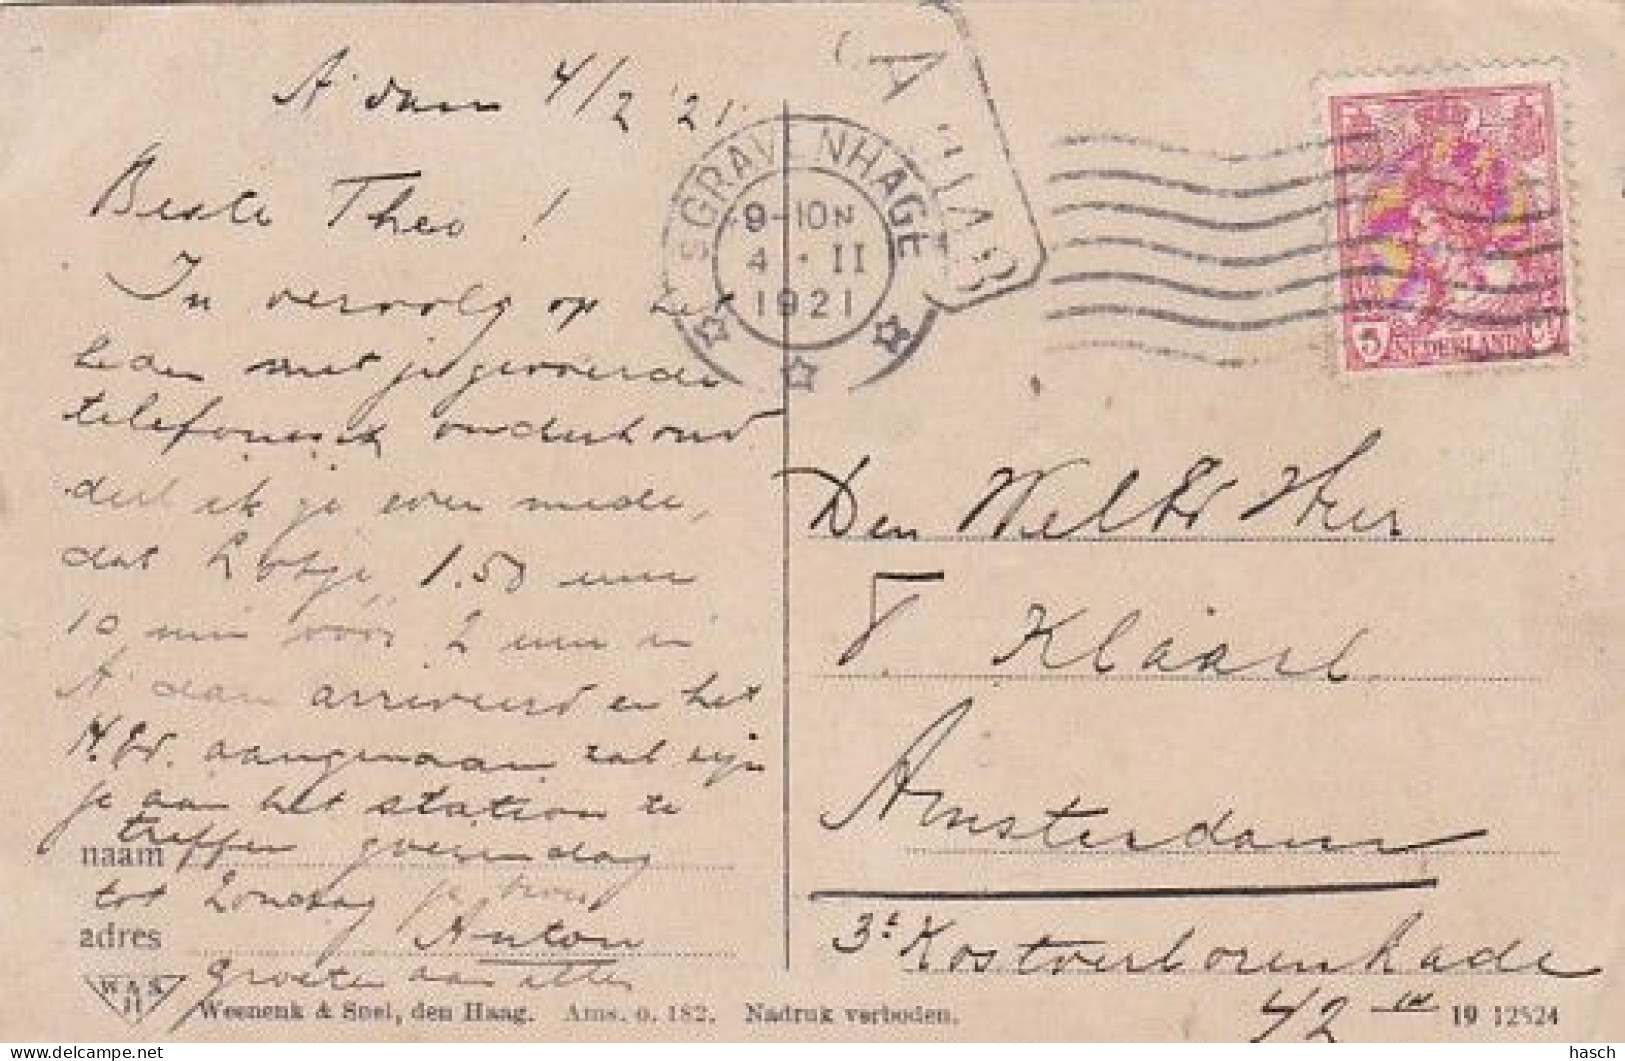 A'dam 4/2 '21
Beste Theo!
In vervolg op het
heden met je gevoerde
telefonisch onderhoud
deel ik je even mede,
dat Lotje 1.50 uur
10 min vóór 2 uur in
A'dam arriveerd en het
H.Ed. aangenaam zal zijn
je aan het station te
treffen goeien dag
tot Zondag je broer
Anton
groeten aan allen
naam
adres
'S GRAVENHAGE
9-10 N
4 · II
1921
NEDERLAND
5
Den WelEd Heer
T. Klaase
Amsterdam
3e Kostverlorenkade
42
W A S
Weenenk & Snel, den Haag. Ams. o. 182. Nadruk verboden.
19 12524
hasch
delcampe.net